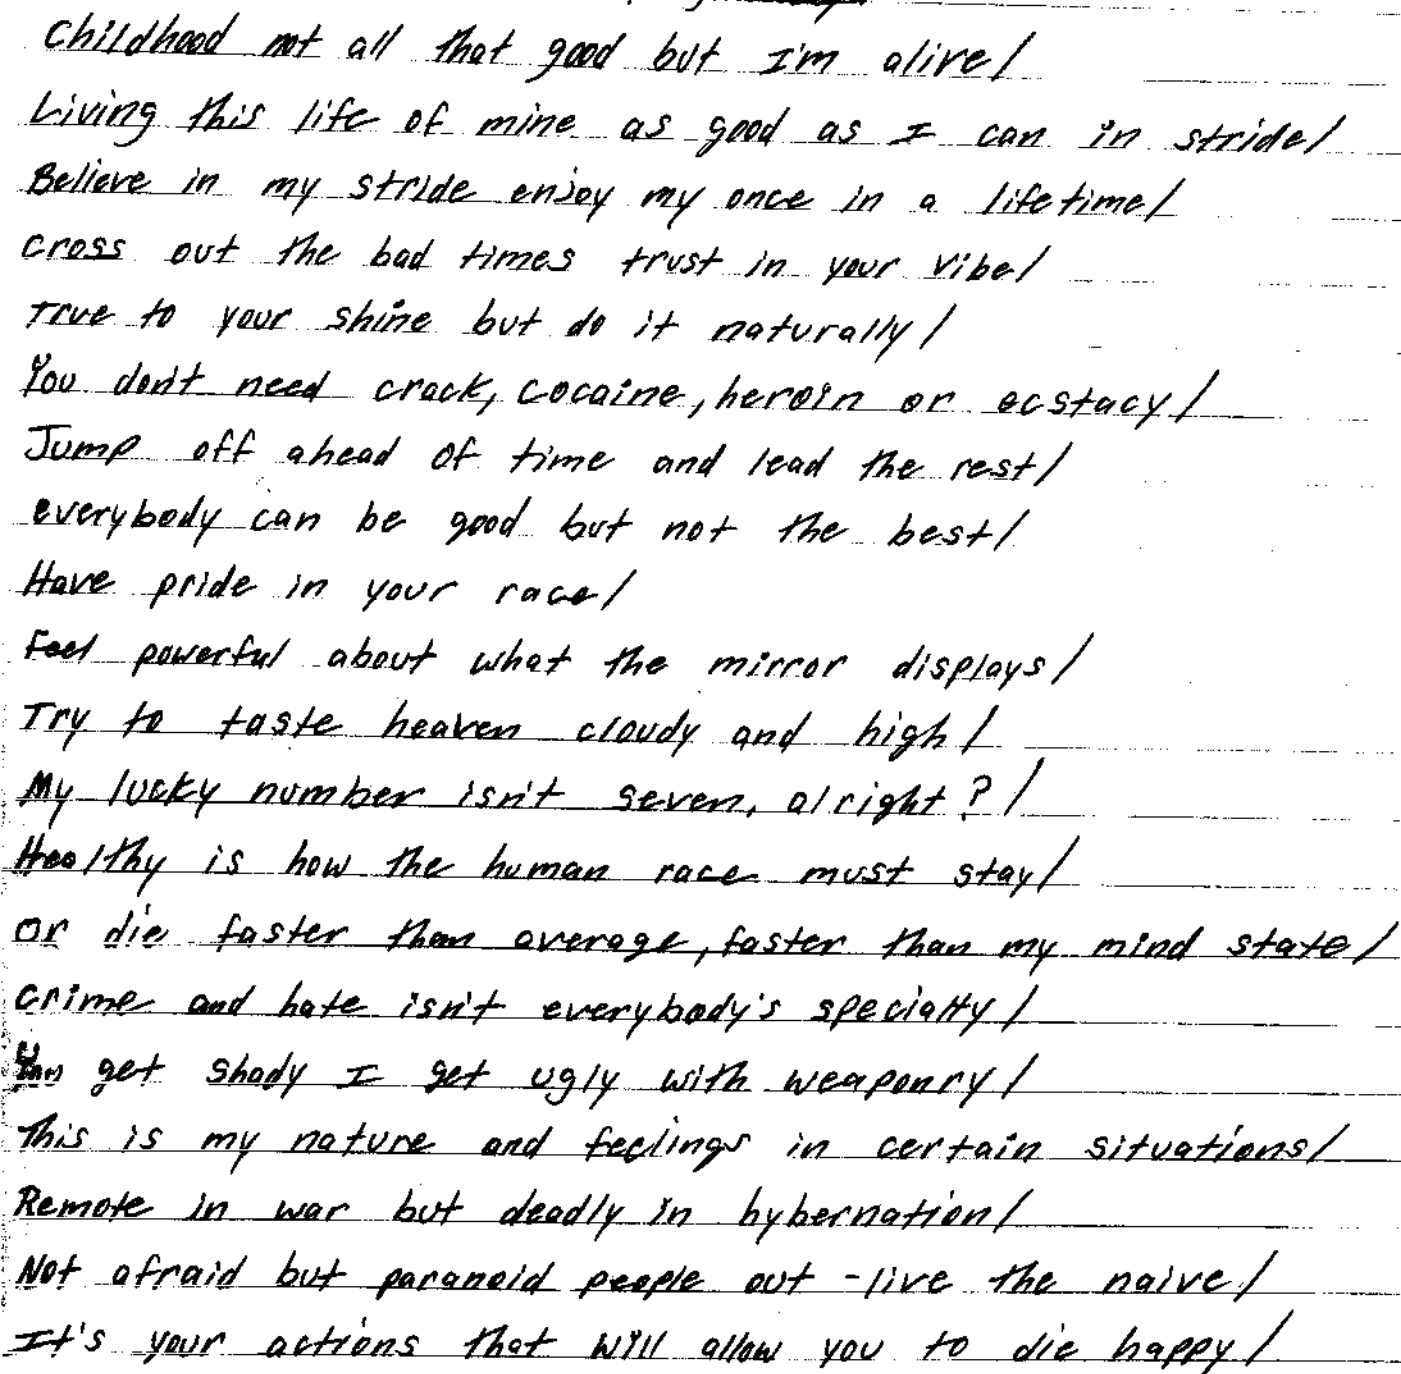 Childhood not all that good but I'm alive/
Living this life of mine as good as I can in stride/
Believe in my stride enjoy my once in a lifetime/
cross out the bad times trust in your vibe/
True to your shine but do it naturally/
You don't need crack, cocaine, heroin or ecstacy/
Jump off ahead of time and lead the rest/
everybody can be good but not the best/
Have pride in your race/
Feel powerful about what the mirror displays/
Try to taste heaven cloudy and high/
My lucky number isn't seven, alright?/
Healthy is how the human race must stay/
Or die faster than average, faster than my mind state/
Crime and hate isn't everybody's specialty/
U get shady I get ugly with weaponry/
This is my nature and feelings in certain situations/
Remote in war but deadly in hybernation/
Not afraid but paranoid people out-live the naive/
It's your actions that will allow you to die happy/